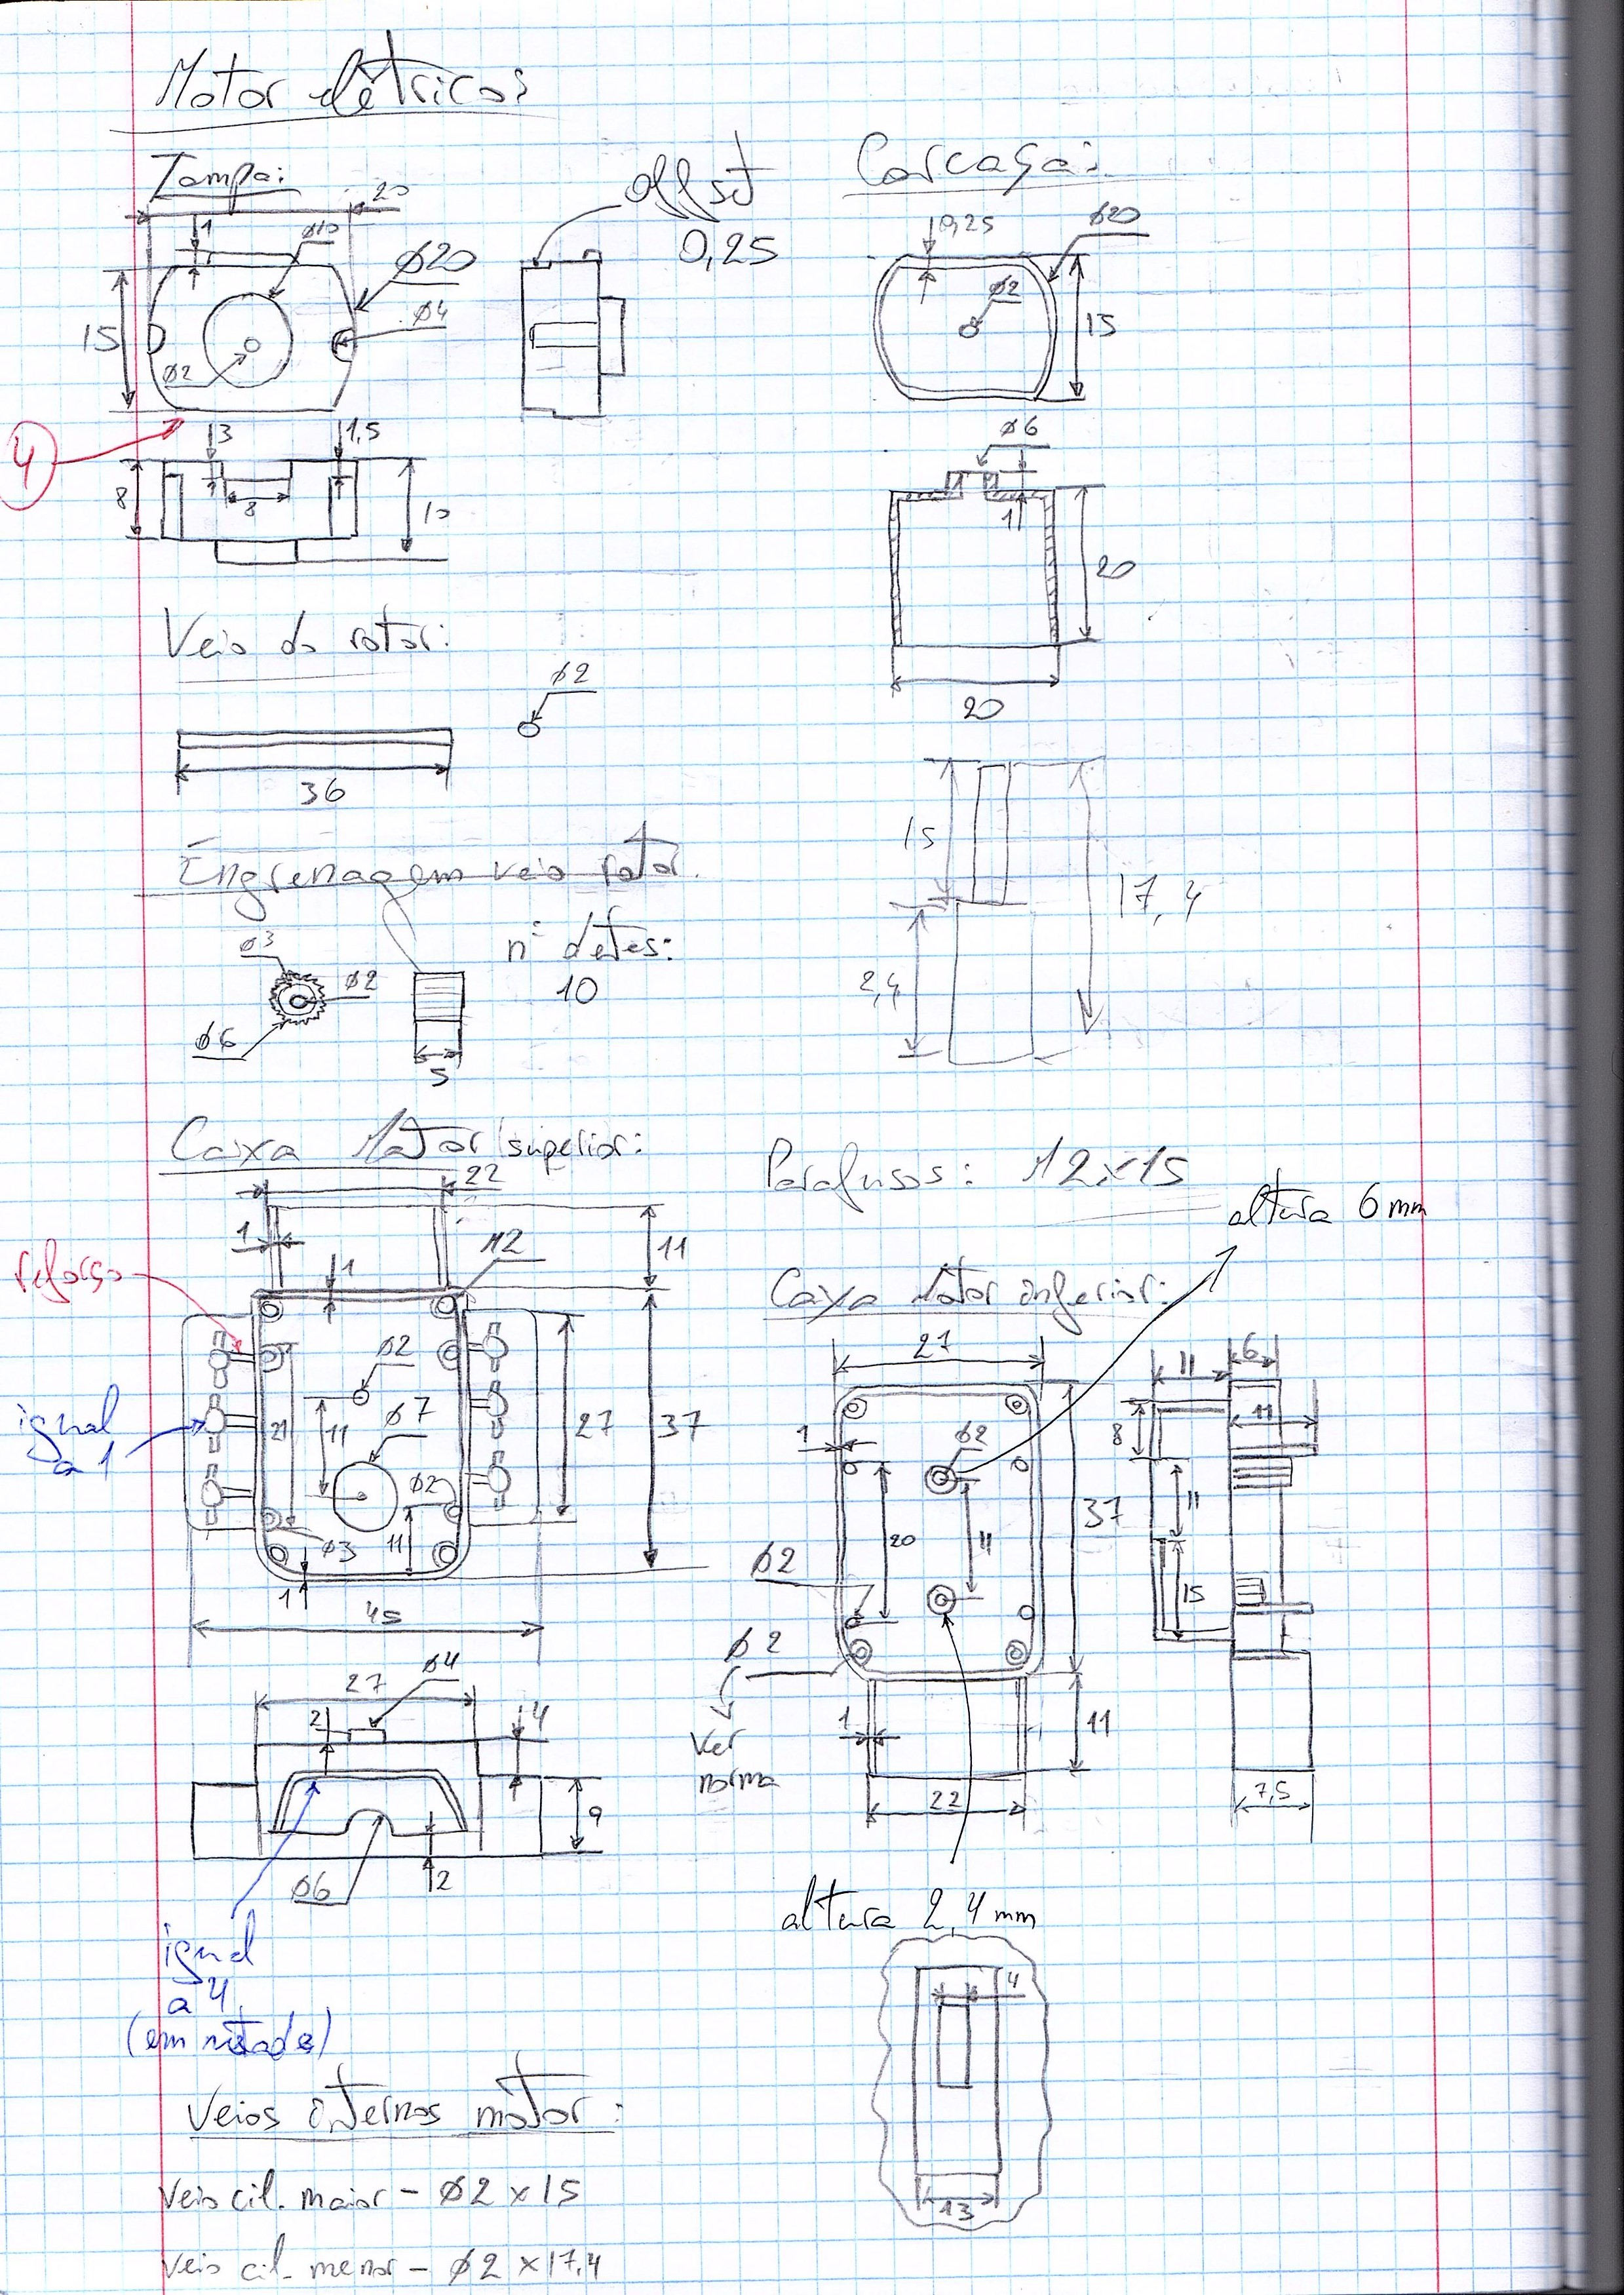 Motor elétrico:
Tampa:
20
1
Ø10
Ø20
Ø4
15
Ø2
offset
0,25
Carcaça:
0,25
Ø20
Ø2
15
4
3
1,5
8
8
10
Ø6
1
20
20
Veio do rotor:
Ø2
36
15
17,4
2,4
Engrenagem veio rotor.
Ø3
Ø2
Ø6
nº detes:
10
5
Caixa Motor superior:
22
1
1
M2
11
reforço
Ø2
Ø7
igual
a 1
21
11
Ø2
27
37
Ø3
11
1
45
27
Ø4
2
4
9
Ø6
2
igual
a 4
(em metade)
Parafusos: M2x15
altura 6mm
Caixa Motor inferior:
27
1
Ø2
20
11
37
Ø2
Ø2
Ver
norma
1
11
22
11
6
8
11
11
15
7,5
altura 2,4mm
4
13
Veios internos motor:
Veio cil. maior - Ø2 x 15
Veio cil. menor - Ø2 x 17.4